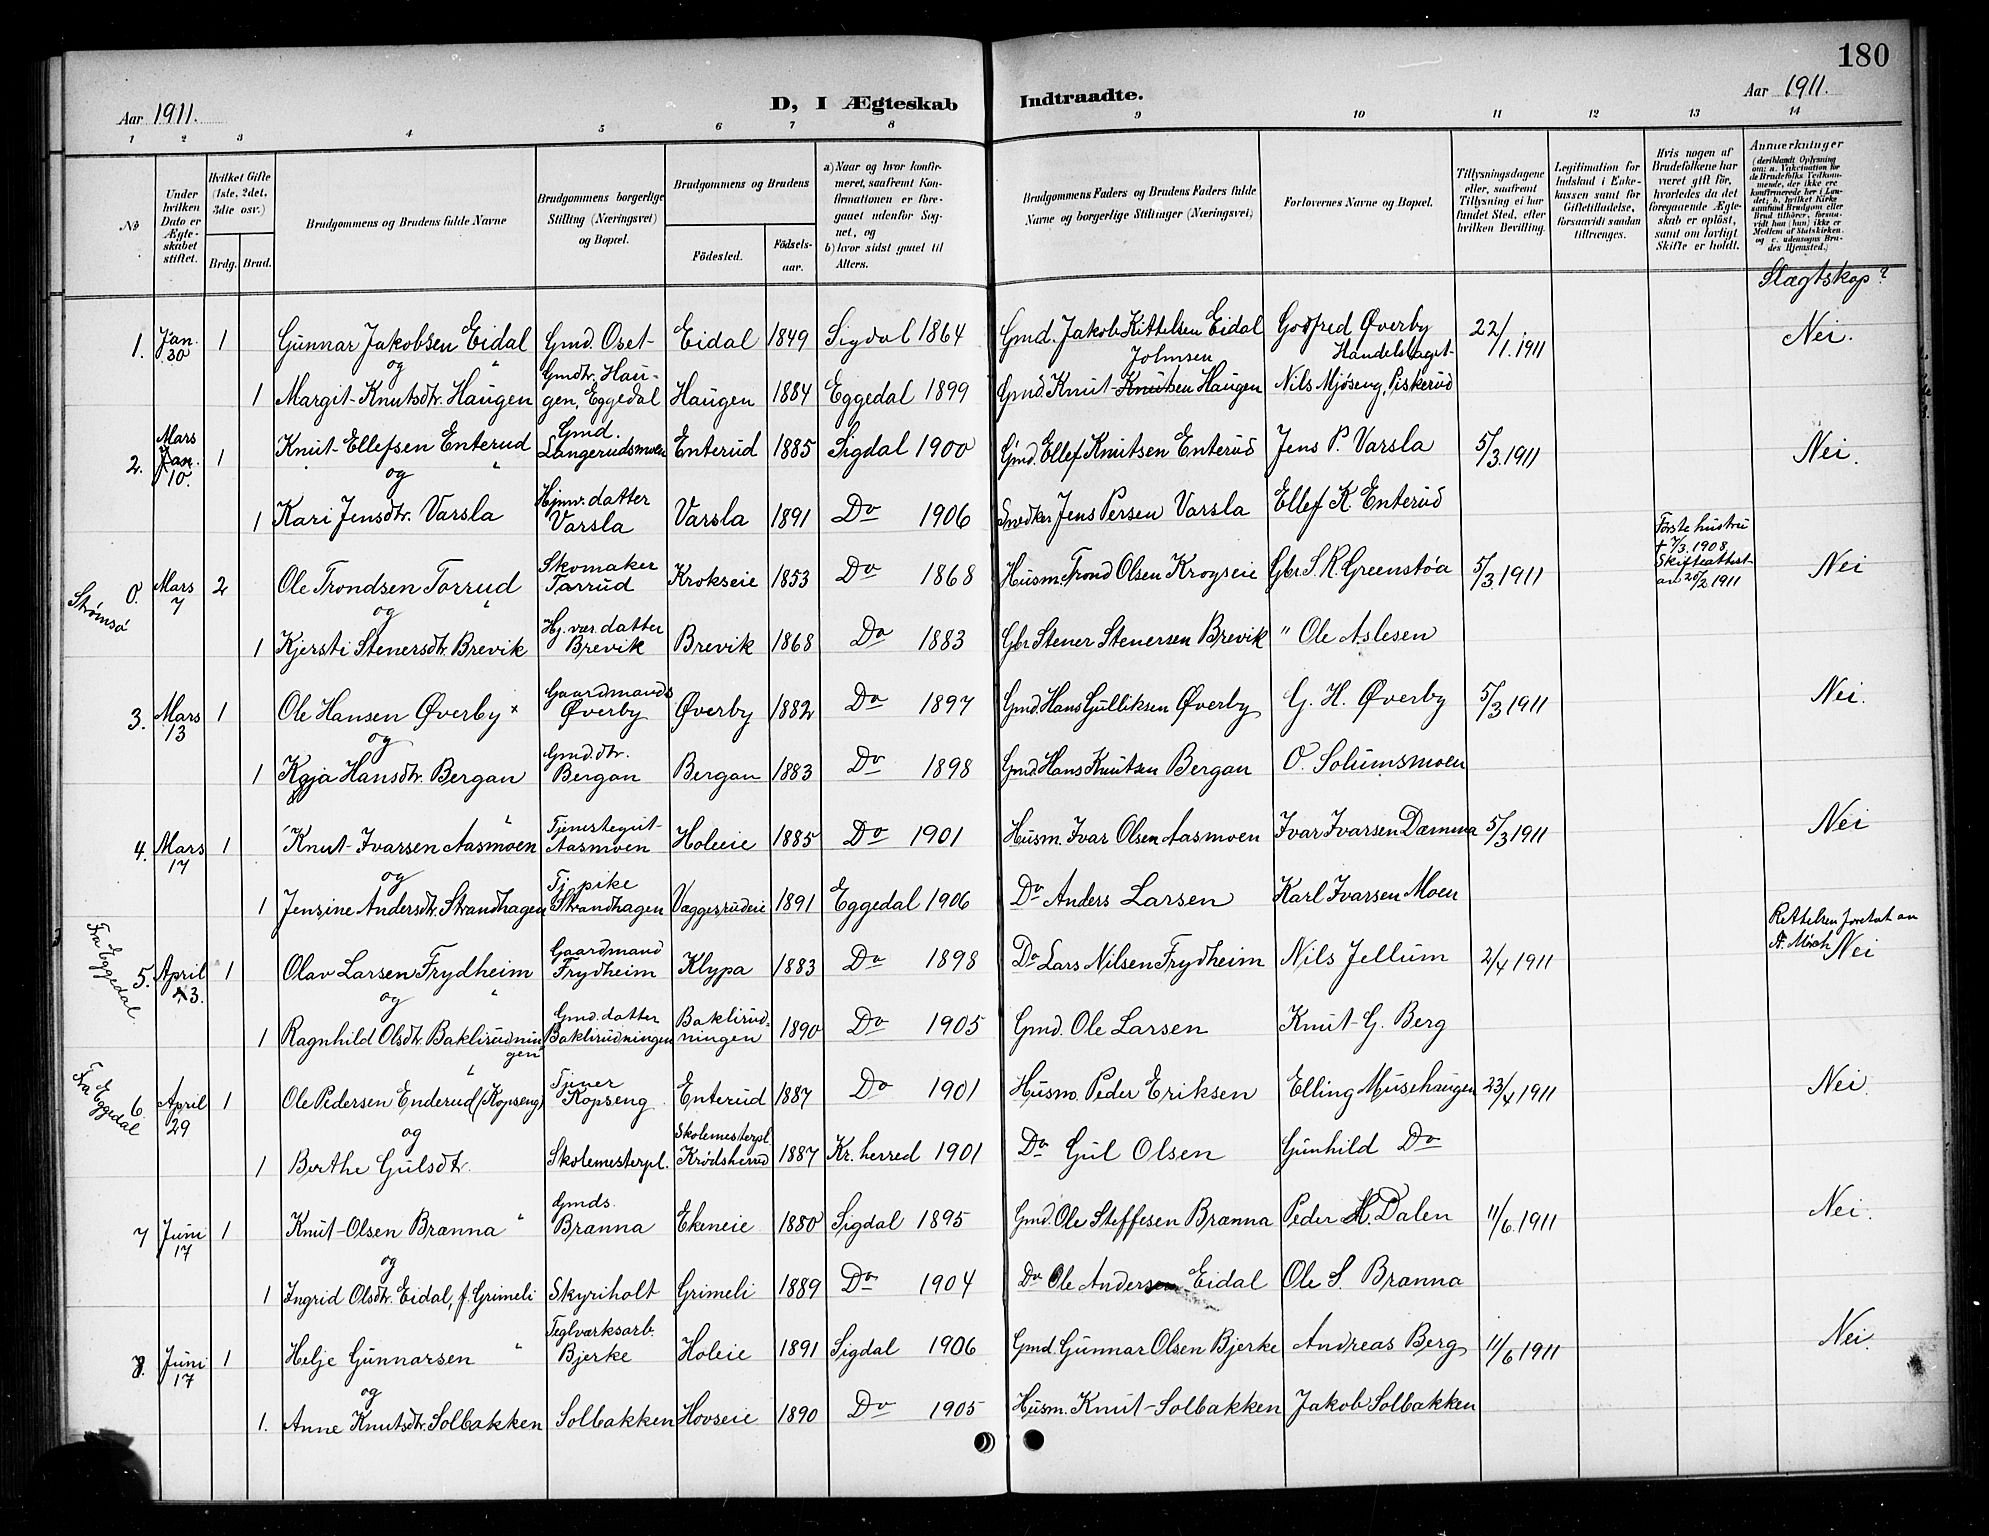 180
Aar 1911.
D, I Ægteskab Indtraadte.
Aar 1911.
1 2 3 4 5 6 7 8 9 10 11 12 13 14
No
Under hvilken Dato er Ægteskabet stiftet.
Hvilket Gifte (1ste, 2det, 3die osv.)
Brdg. Brud.
Brudgommens og Brudens fulde Navne
Brudgommens borgerlige Stilling (Næringsvei) og Bopæl.
Brudgommens og Brudens
Födested. Födsels-aar.
a) Naar og hvor konfirmeret, saafremt Konfirmationen er foregaaet udenfor Sognet, og
b) hvor sidst gaaet til Alters.
Brudgommens Faders og Brudens Faders fulde Navne og borgerlige Stillinger (Næringsvei)
Forlovernes Navne og Bopæl.
Tillysningsdagene eller, saafremt Tillysning ei har fundet Sted, efter hvilken Bevilling.
Legitimation for Indskud i Enkekassen samt for Giftetilladelse, forsaavidt saadan tiltrænges.
Hvis nogen af Brudefolkene har været gift før, hvorledes da det foregaaende Ægteskab er opløst, samt om lovligt Skifte er holdt.
Anmærkninger
(deriblandt Oplysning om: a. Vakcination for de Brudefolks Vedkommende, der ikke ere konfirmerede her i Landet; b. hvilket Kirkesamfund Brudgom eller Brud tilhører, forsaavidt han (hun) ikke er Medlem af Statskirken og c. udensogns Brudes Hjemsted.)
Slægtskap?
1. Jan. 30 1 Gunnar Jakobsen Eidal Gmd. Oset- Eidal 1849 Sigdal 1864 Gmd. Jakob Kittelsen Eidal Godfred Øverby Handelslaget 22/1.1911 Nei.
og
1 Margit Knutsdtr. Haugen Gmdtr. Haugen, Eggedal Haugen 1884 Eggedal 1899 Gmd. Knut Knutsen Johnsen Haugen Nils Mjøseng, Piskerud
2. Mars Jan. 10. 1 Knut Ellefsen Enterud Gmd. Langerudsmoen Enterud 1885 Sigdal 1900 Gmd. Ellef Knutsen Enterud Jens P. Varsla 5/3.1911 Nei.
og
1 Kari Jensdtr. Varsla Hjmv. datter Varsla Varsla 1891 Do 1906 Snedker Jens Persen Varsla Ellef K. Enterud
Strømsø 0. Mars 7 2 Ole Trondsen Torrud Skomaker Torrud Krokseie 1853 Do 1868 Husm. Trond Olsen Krogseie Gbr. S. R. Greenstøa 5/3.1911 Første hustru + 7/3.1908 Skifteattest av 20/2 1911 Nei
og
1 Kjersti Stenersdtr. Brevik Hj. vær. datter Brevik Brevik 1868 Do 1883 Gbr Stener Stenersen Brevik " Ole Aslesen
3. Mars 13 1 Ole Hansen Øverby × Gaardmands Øverby Øverby 1882 Do 1897 Gmd. Hans Gulliksen Øverby G. H. Øverby 5/3 1911 Nei.
og
1 Kaja Hansdtr. Bergan Gmd. dtr. Bergan Bergan 1883 Do 1898 Gmd. Hans Knutsen Bergan O. Solumsmoen
4. Mars 17 1 Knut Ivarsen Aasmoen Tjenstegut Aasmoen Holeie 1885 Do 1901 Husm. Ivar Olsen Aasmoen Ivar Ivarsen Damma 5/3 1911 Nei
og
1 Jensine Andersdtr. Strandhagen Tj. pike Strandhagen Væggesrudeie 1891 Eggedal 1906 Do Anders Larsen Karl Ivarsen Moen
Fra Eggedal. 5. April 3. 1 Olav Larsen Frydheim Gaardmand Frydheim Klypa 1883 Do 1898 Do Lars Nilsen Frydheim Nils Jellum 2/4 1911 Rettelsen foretat av A. Mørch Nei
og
1 Ragnhild Olsdtr. Baklirudningen Gmd. datter Baklirudningen Baklirudningen 1890 Do 1905 Gmd. Ole Larsen Knut G. Berg
Fra Eggedal 6 April 29 1 Ole Pedersen Enderud (Kopseng) Tjener Kopseng Enterud 1887 Do 1901 Husm. Peder Eriksen Elling Musehaugen 23/4 1911 Nei.
og
1 Berthe Gulsdtr. Skolemesterpl. Skolemesterpl. Krødsherred 1887 Kr. herred 1901 Do Gul Olsen Gunhild Do
7 Juni 17 1 Knut Olsen Brænna " Gmds. Brænna Ekeneie 1880 Sigdal 1895 Gmd. Ole Steffesen Brænna Peder H. Dalen 11/6.1911 Nei.
og
1 Ingrid Olsdtr. Eidal, f. Grimeli Skyriholt Grimeli 1889 Do 1904 Do Ole Andersen Eidal Ole S. Brænna
8. Juni 17 1 Helje Gunnarsen " Teglværksarb. Bjerke Holeie 1891 Sigdal 1906 Gmd. Gunnar Olsen Bjerke Andreas Berg 11/6 1911 Nei.
og
1. Anne Knutsdtr. Solbakken Solbakken Hovseie 1890 Do 1905 Husm. Knut Solbakken Jakob Solbakken